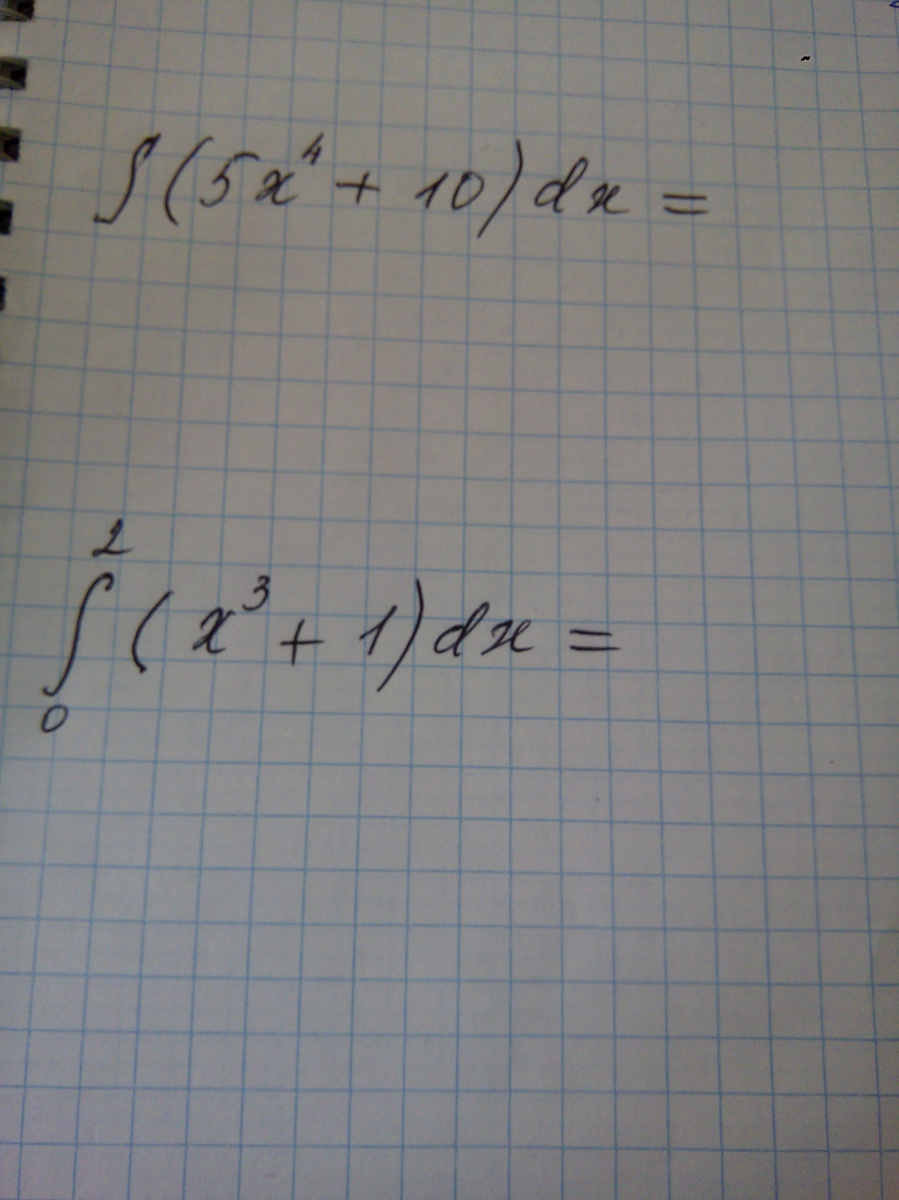 ∫(5x⁴ + 10)dx =
2
∫(x³ + 1)dx =
0